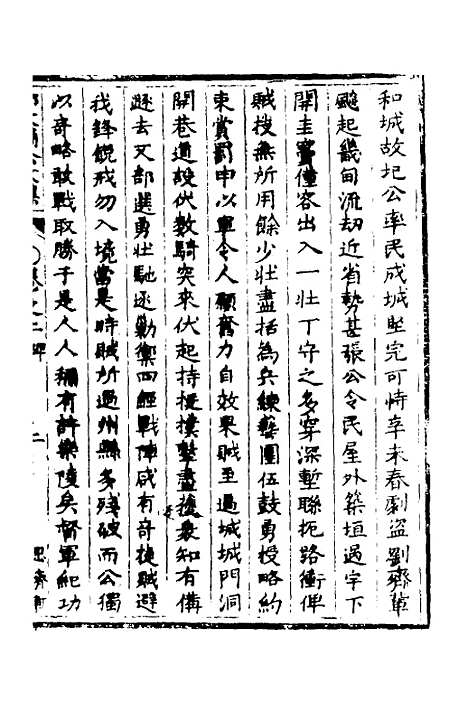 和城故圮公率民成城坚完可恃辛未春劇盜劉齊輩
飈起畿甸流劫近省勢甚張公令民屋外築垣過宇下
開圭竇僅容出入一壮丁守之多穿深塹聯扼路衝俾
賊授無所用餘少壮盡括為兵練藝團伍鼓勇授略約
束賞罰申以軍令人願奮力自效果賊至過城城門洞
開巷道設伏数騎突來伏起持挺撲擊盡獲衆知有備
遂去又部選勇壮馳逐勦禦四經戰陣咸有奇捷賊避
我鋒銳戒勿入境當是時賊所過州縣多殘破而公獨
以奇略敢戰取勝于是人人稱有許樂陵矣督軍紀功
卷之二碑
二
思齋